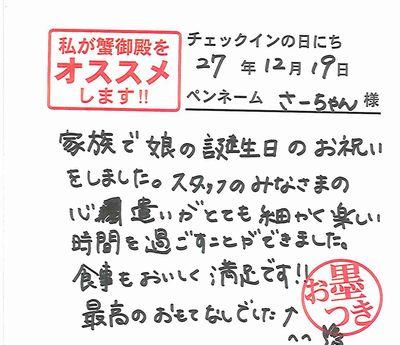 私が蟹御殿を
オススメ
します!!
チェックインの日にち
27 年 12月 19日
ペンネーム さーちゃん 様
家族で娘の誕生日のお祝い
をしました。スタッフのみなさまの
心遣いがとても細かく楽しい
時間を過ごすことができました。
食事もおいしく満足です!!
最高のおもてなしでした↑
^^
お墨つき